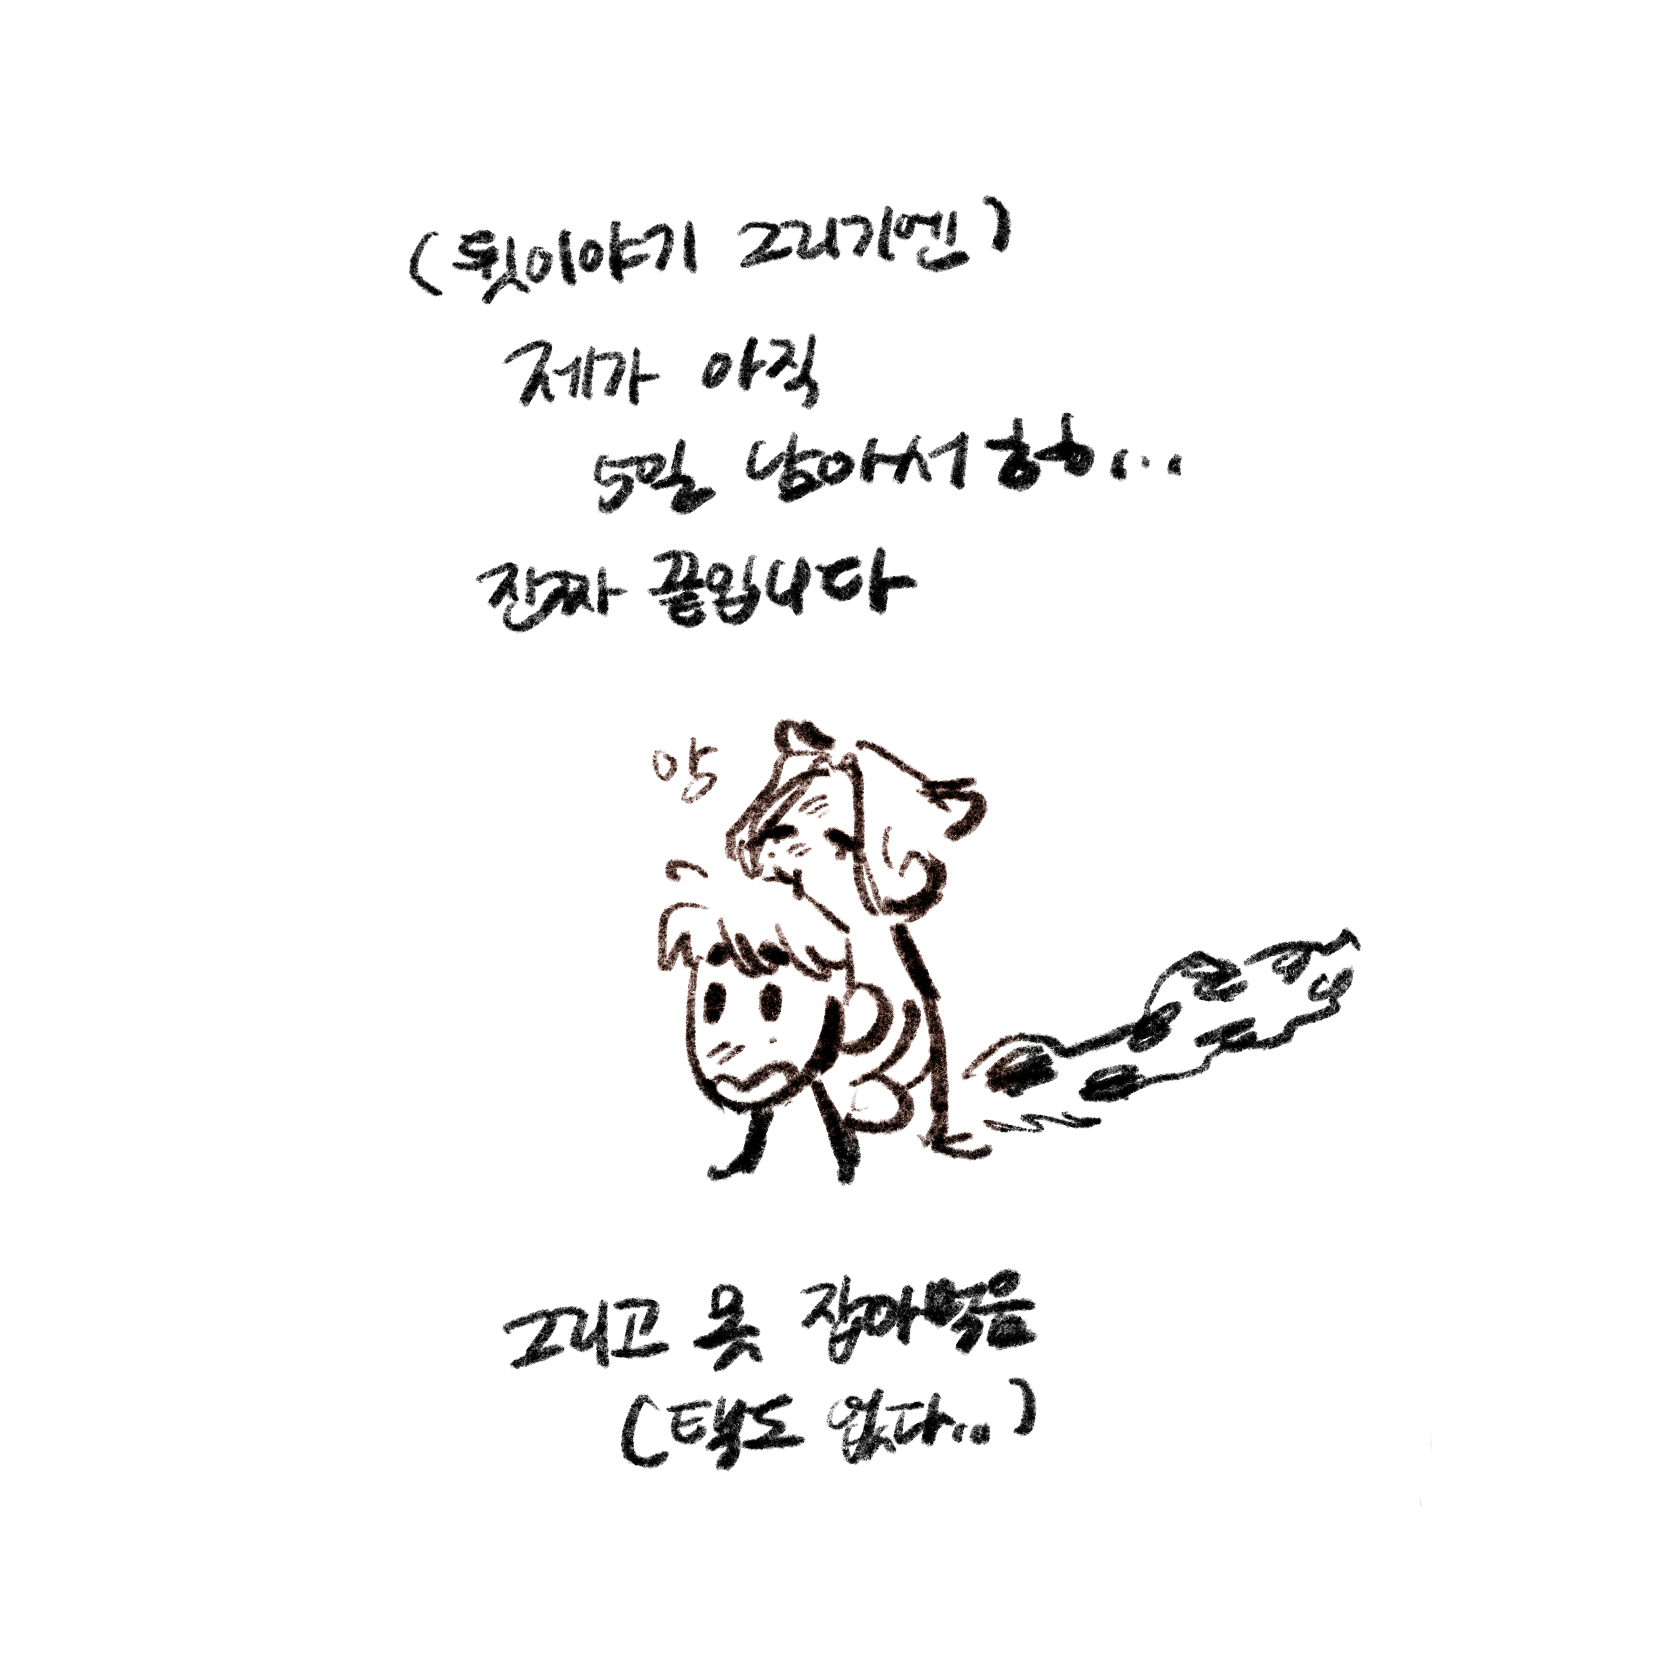 (뒷이야기 그리기엔)
제가 아직
5일 남아서 핳ㅎ...
진짜 끝입니다
앙
그리고 못 잡아먹음
(택도 없다...)